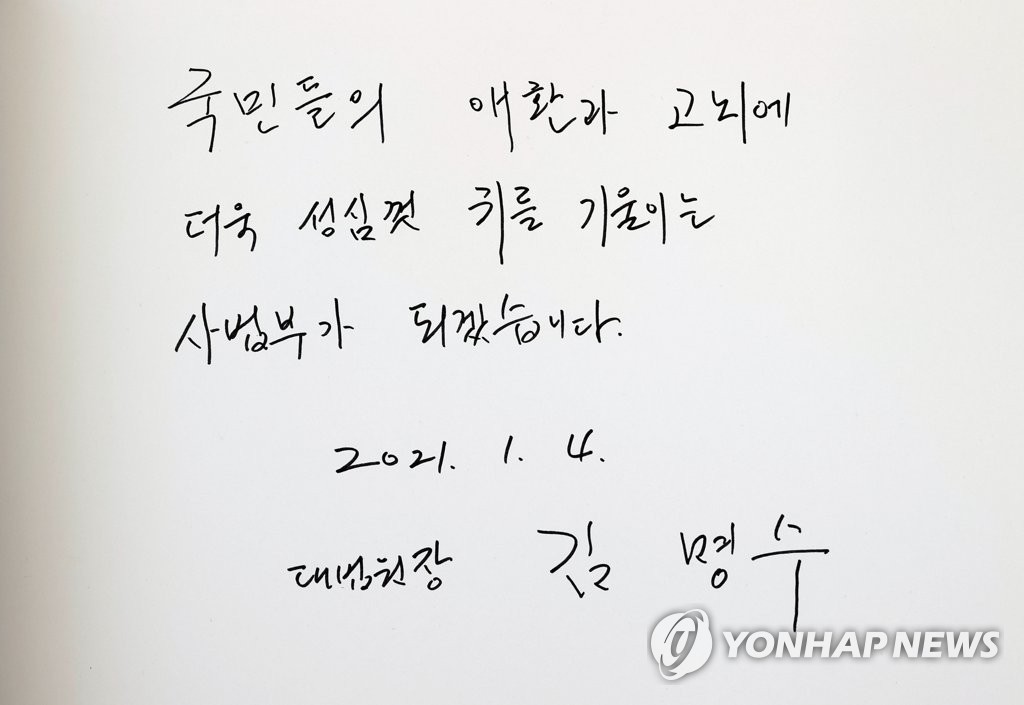 국민들의 애환과 고뇌에
더욱 성심껏 귀를 기울이는
사법부가 되겠습니다.
2021. 1. 4.
대법원장 김명수
YONHAP NEWS